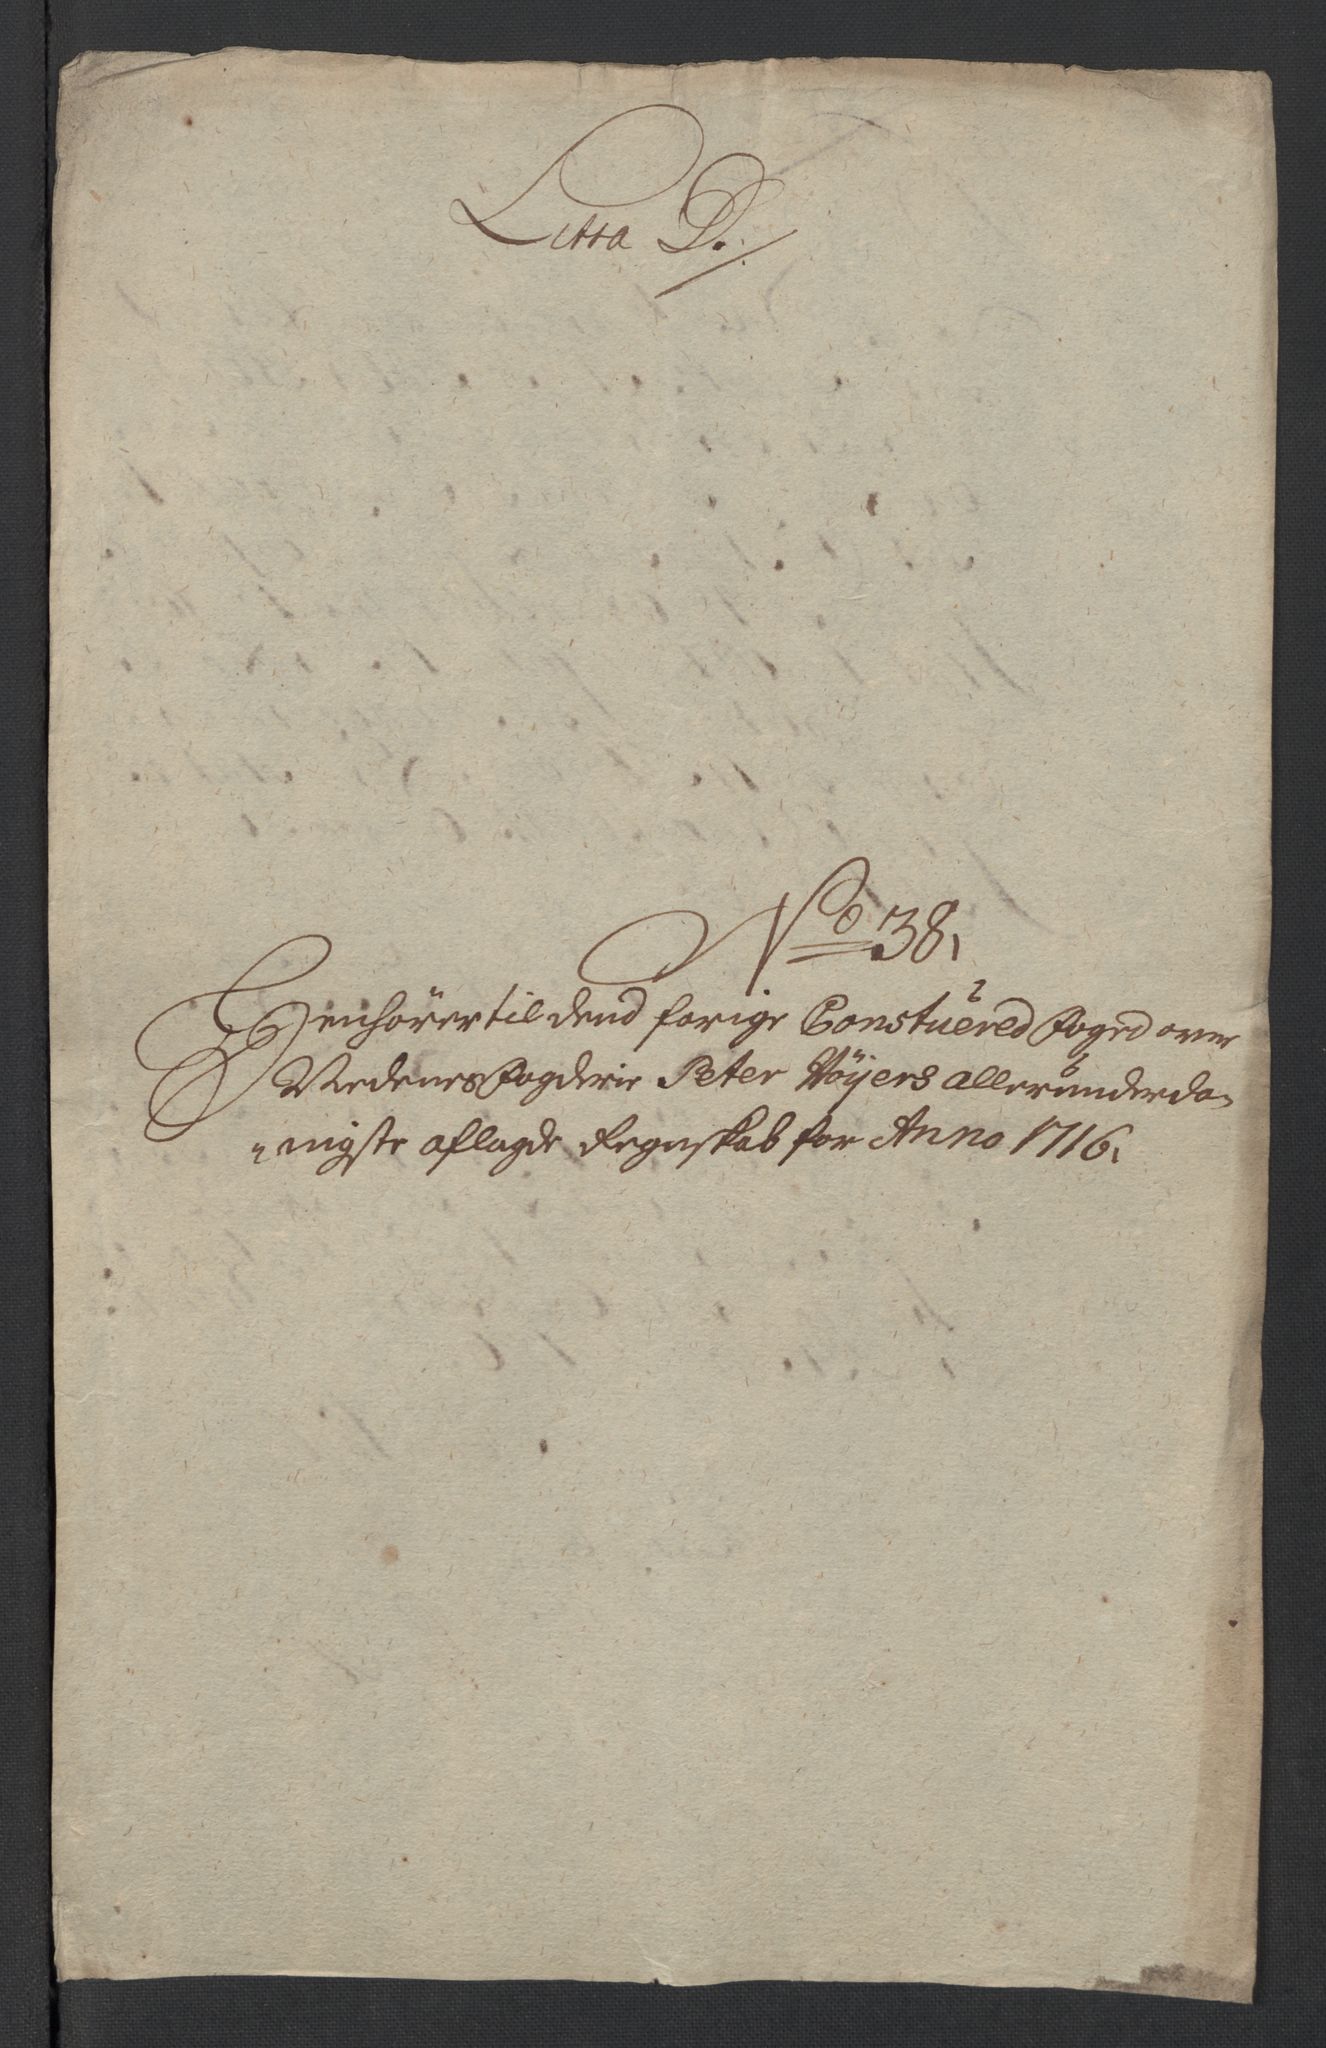 Littra D.
No 38.
Henhörer til dend forige Constituered Foged over
Nedenes Fogderie Peter Höyers allerunderda-
nigste aflagde Regnskab for Anno 1716.